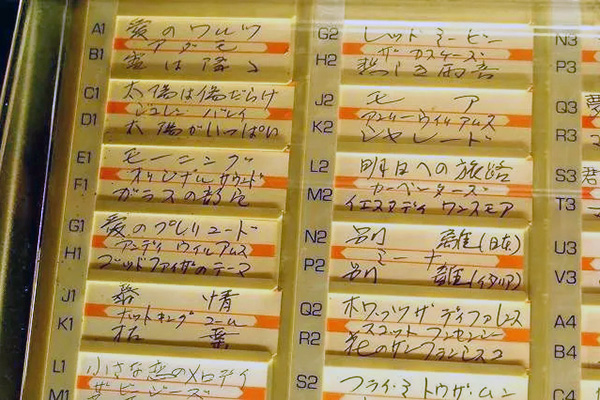 A1
愛のワルツ
アダモ
B1
雪は降る
C1
太陽は傷だらけ
D1
太陽がいっぱい
E1
モーニング
オリジナルサウンド
F1
ガラスの部屋
G1
愛のプレリュード
アンディ ウイルアムス
H1
ゴッドファザのテーマ
J1
慕情
ナットキングコール
K1
枯葉
L1
小さな恋のメロディ
ザ・ビージーズ
M1
G2
レッドミービン
ザ カスケーズ
H2
悲しき雨音
J2
モア
アンディーウイルアムス
K2
シャレード
L2
明日への旅路
カーペンターズ
M2
イエスタデイ ワンスモア
N2
別離(日本)
ミーナ
P2
別離(イタリア)
Q2
ホワッツザ ディファレンス
スコット マッケンジー
R2
花のサンフランシスコ
S2
フライ・ミトウザ・ムン
N3
P3
Q3
R3
S3
T3
U3
V3
A4
B4
C4